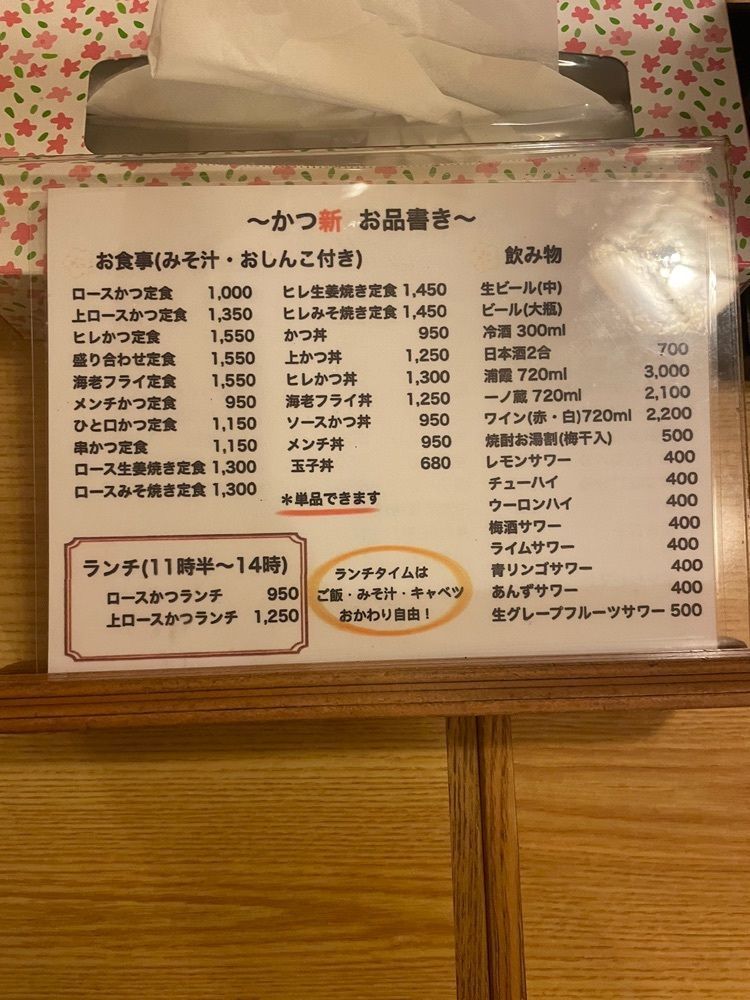 〜かつ新 お品書き〜
お食事(みそ汁・おしんこ付き)
ロースかつ定食 1,000
上ロースかつ定食 1,350
ヒレかつ定食 1,550
盛り合わせ定食 1,550
海老フライ定食 1,550
メンチかつ定食 950
ひと口かつ定食 1,150
串かつ定食 1,150
ロース生姜焼き定食 1,300
ロースみそ焼き定食 1,300
ヒレ生姜焼き定食 1,450
ヒレみそ焼き定食 1,450
かつ丼 950
上かつ丼 1,250
ヒレかつ丼 1,300
海老フライ丼 1,250
ソースかつ丼 950
メンチ丼 950
玉子丼 680
＊単品できます
ランチ(11時半〜14時)
ロースかつランチ 950
上ロースかつランチ 1,250
ランチタイムは
ご飯・みそ汁・キャベツ
おかわり自由！
飲み物
生ビール(中)
ビール(大瓶)
冷酒 300ml
日本酒2合 700
浦霞 720ml 3,000
一ノ蔵 720ml 2,100
ワイン(赤・白)720ml 2,200
焼酎お湯割(梅干入) 500
レモンサワー 400
チューハイ 400
ウーロンハイ 400
梅酒サワー 400
ライムサワー 400
青リンゴサワー 400
あんずサワー 400
生グレープフルーツサワー 500